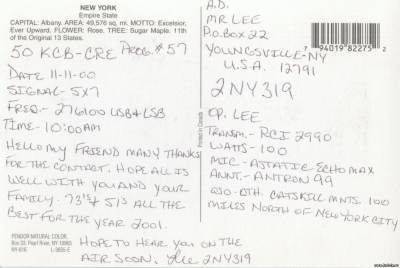 NEW YORK
Empire State
CAPITAL: Albany. AREA: 49,576 sq. mi. MOTTO: Excelsior,
Ever Upward. FLOWER: Rose. TREE: Sugar Maple. 11th
of the Original 13 States.
50 KCB-CRE PROG.#57
DATE 11-11-00
SIGNAL-5X7
FREQ- 276100 USB&LSB
TIME-10:00AM
HELLO MY FRIEND MANY THANKS
FOR THE CONTACT. HOPE ALL IS
WELL WITH YOU AND YOUR
FAMILY. 73's & 51's ALL THE
BEST FOR THE YEAR 2001.
HOPE TO HEAR YOU ON THE
AIR SOON. Lee 2NY319
PENDOR NATURAL COLOR
Box 33, Pearl River, NY 10965
Printed in Canada
A.D.
MR LEE
P.O.BOX 22
YOUNGSVILLE-NY
U.S.A. 12791
2NY319
7 94019 82275 2
OP. LEE
TRANSM.- RCI 2990
WATTS-100
MIC-ASTATIC ECHOMAX
ANNT.-ANTRON 99
QSO-QTH. CATSKILL MNTS. 100
MILES NORTH OF NEW YORK CITY